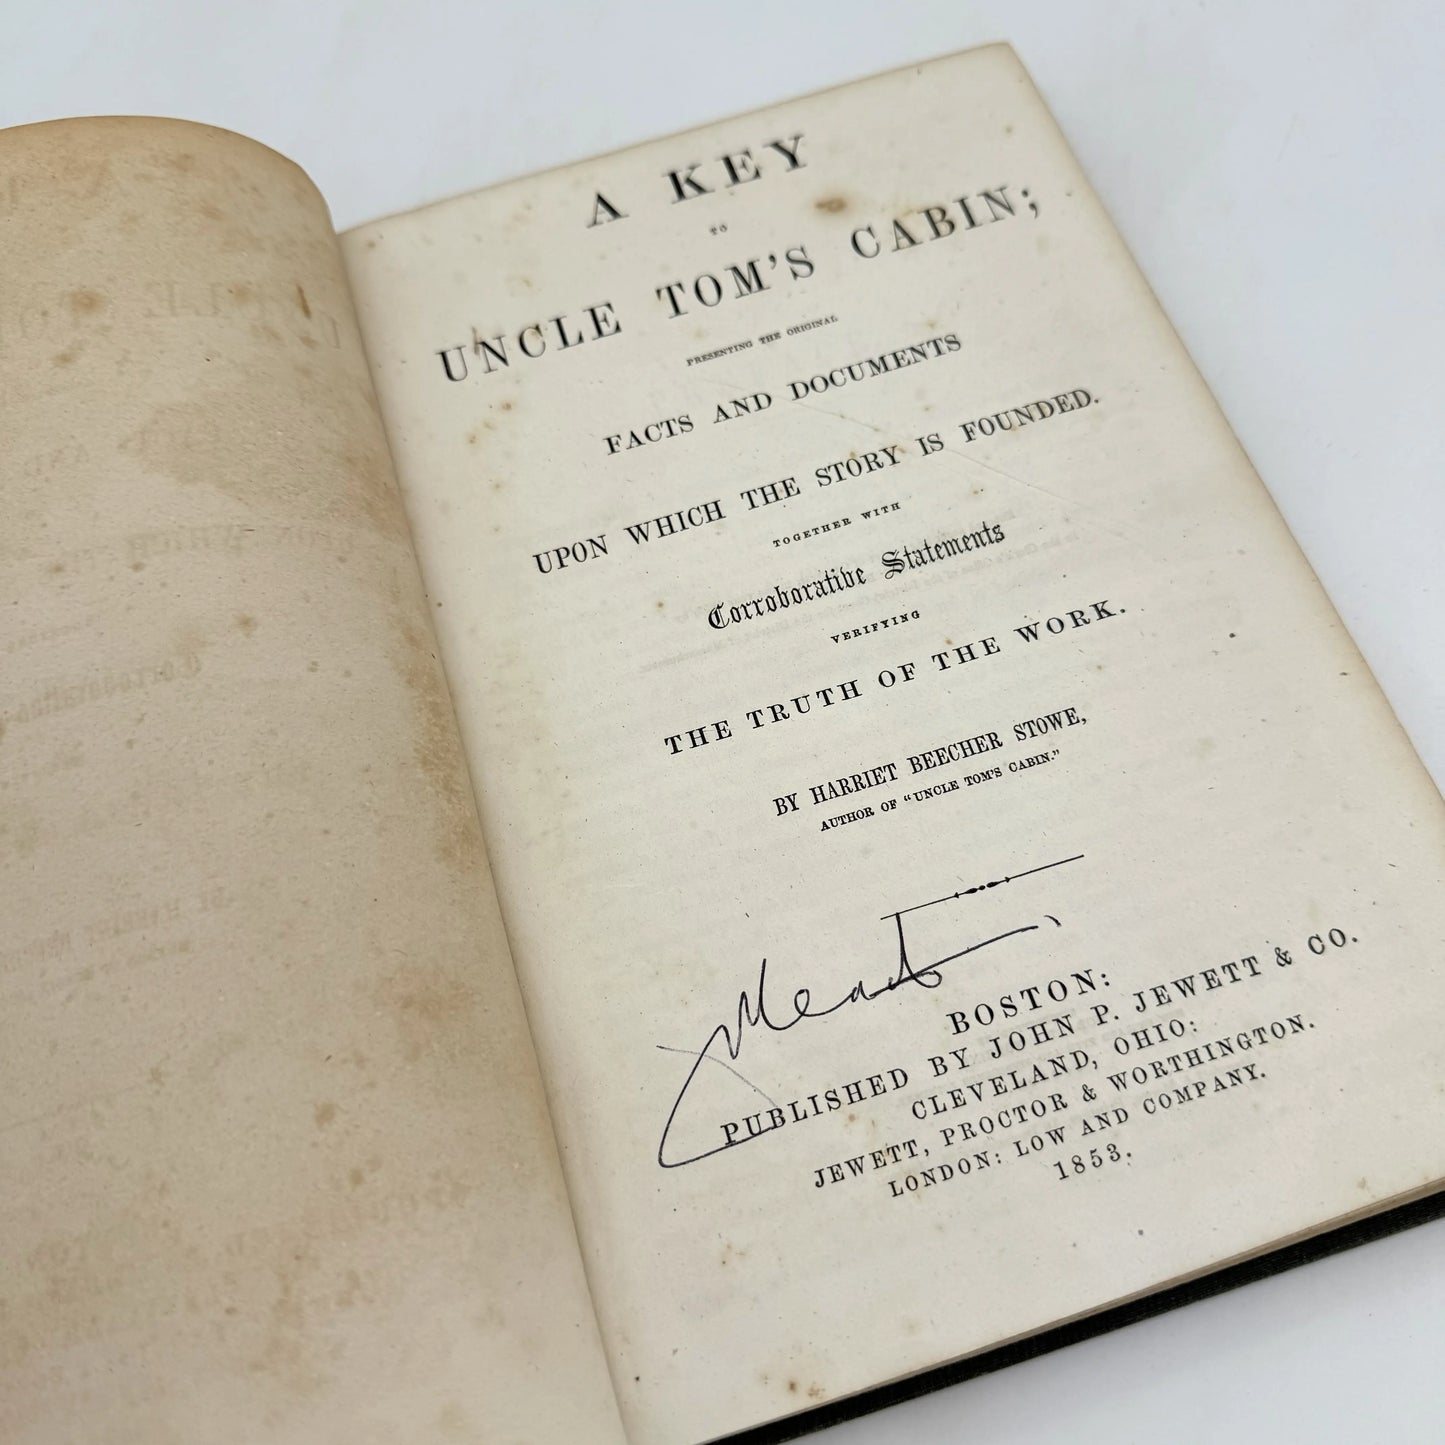 A KEY
TO
UNCLE TOM'S CABIN;
PRESENTING THE ORIGINAL
FACTS AND DOCUMENTS
UPON WHICH THE STORY IS FOUNDED.
TOGETHER WITH
Corroborative Statements
VERIFYING
THE TRUTH OF THE WORK.
BY HARRIET BEECHER STOWE,
AUTHOR OF "UNCLE TOM'S CABIN."
BOSTON:
PUBLISHED BY JOHN P. JEWETT & CO.
CLEVELAND, OHIO:
JEWETT, PROCTOR & WORTHINGTON.
LONDON: LOW AND COMPANY.
1853.